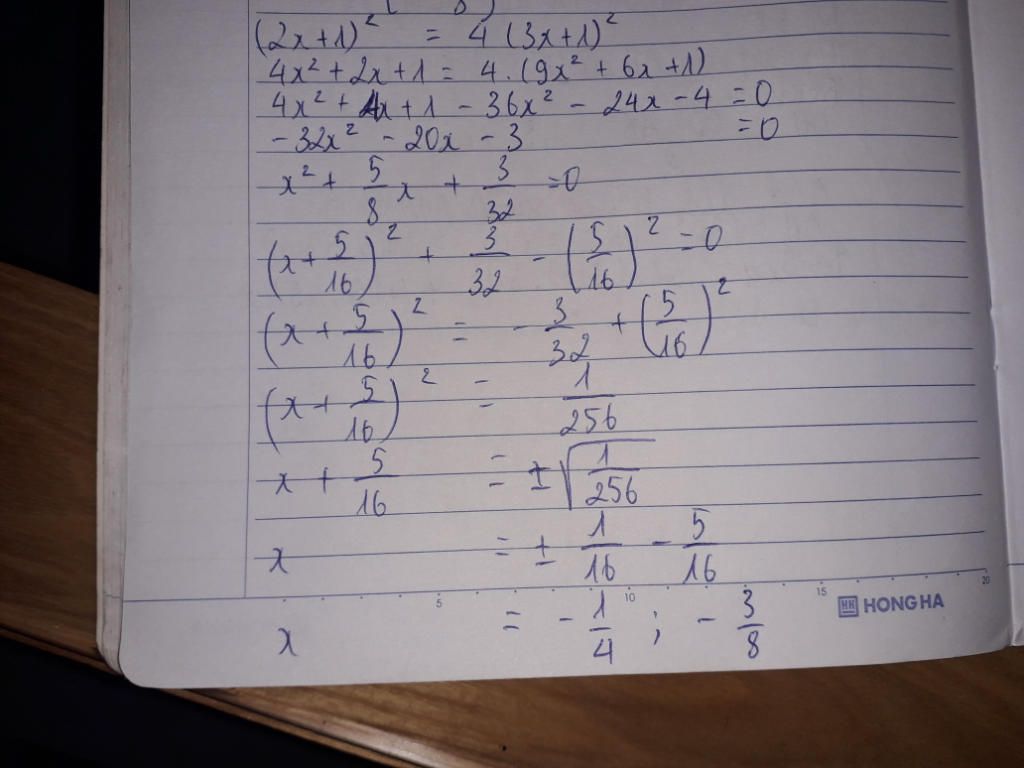 (2x+1)² = 4(3x+1)²
4x² + 2x + 1 = 4.(9x² + 6x + 1)
4x² + 4x + 1 - 36x² - 24x - 4 = 0
- 32x² - 20x - 3 = 0
x² + 5/8 x + 3/32 = 0
(x + 5/16)² + 3/32 - (5/16)² = 0
(x + 5/16)² = - 3/32 + (5/16)²
(x + 5/16)² = 1/256
x + 5/16 = ± √(1/256)
x = ± 1/16 - 5/16
5 10 15 20
HONG HA
x = - 1/4 ; - 3/8